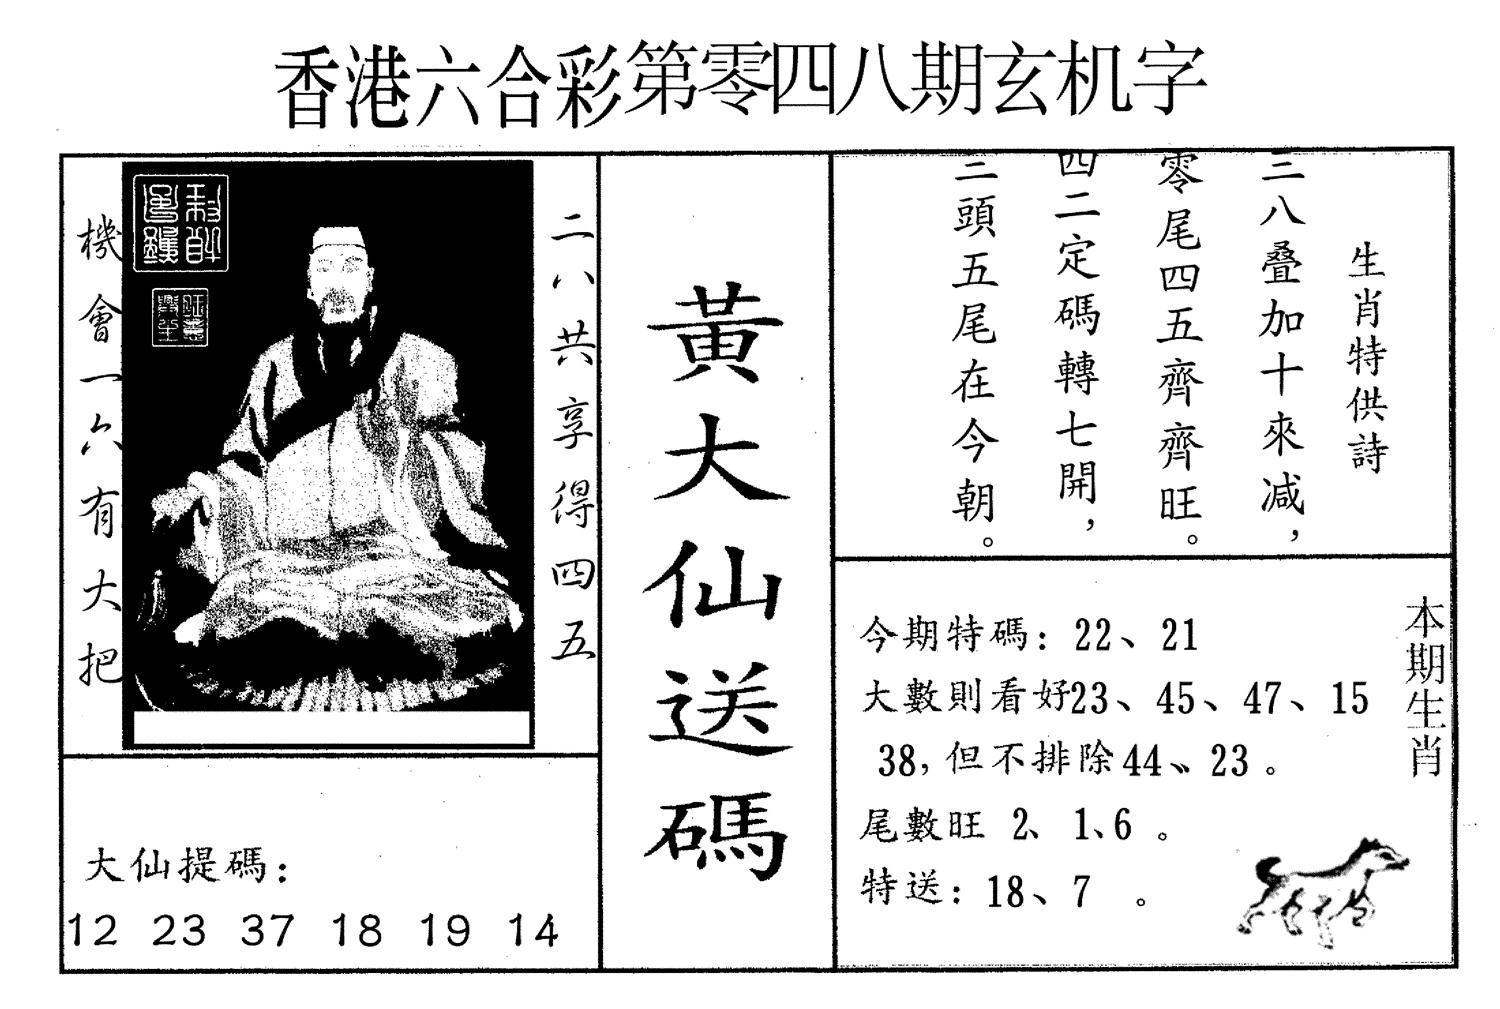 香港六合彩第零四八期玄机字
機會一六有大把
二八共享得四五
大仙提碼：
12 23 37 18 19 14
黃大仙送碼
生肖特供詩
三八叠加十來減，
零尾四五齊齊旺。
四二定碼轉七開，
三頭五尾在今朝。
本期生肖
今期特碼：22、21
大數則看好23、45、47、15
38，但不排除44、23。
尾數旺 2、1、6。
特送：18、7 。